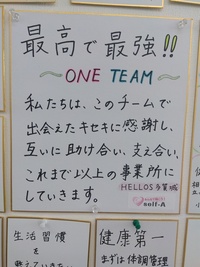 最高で最強!!
〜ONE TEAM〜
私たちは、このチームで
出会えたキセキに感謝し、
互いに助け合い、支え合い、
これまで以上の事業所に
していきます。
HELLOS多賀城
self-A
生活習慣
を
整えていきたい
健康第一
まずは体調管理